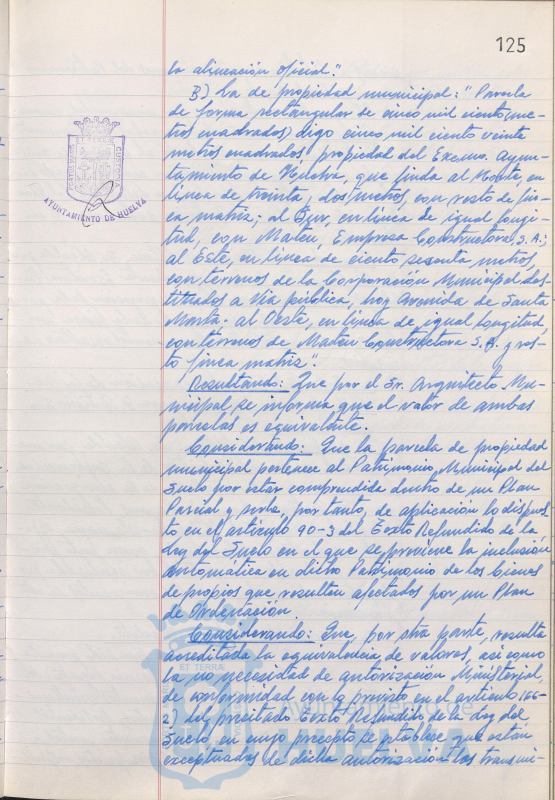 125
la alineación oficial".
B) La de propiedad municipal: "Parcela
de forma rectangular de cinco mil ciento me-
tros cuadrados, digo cinco mil ciento veinte
metros cuadrados, propiedad del Excmo. Ayun-
tamiento de Huelva, que linda al Norte, en
línea de treinta y dos metros, con resto de fin-
ca matriz; al Sur, en línea de igual longi-
tud, con Mateu, Empresa Constructora S.A.;
al Este, en línea de ciento sesenta metros,
con terrenos de la Corporación Municipal des-
tinados a Vía pública, hoy Avenida de Santa
Marta. al Oeste, en línea de igual longitud,
con terrenos de Mateu Constructora S.A. y res-
to finca matriz".
Resultando: Que por el Sr. Arquitecto Mu-
nicipal se informa que el valor de ambas
parcelas es equivalente.
Considerando: Que la parcela de propiedad
municipal pertenece al Patrimonio Municipal del
Suelo por estar comprendida dentro de un Plan
Parcial y serle, por tanto, de aplicación lo dispues-
to en el artículo 90-3 del Texto Refundido de la
Ley del Suelo en el que se previene la inclusión
automática en dicho Patrimonio de los bienes
de propios que resulten afectados por un Plan
de Ordenación.
Considerando: Que, por otra parte, resulta
acreditada la equivalencia de valores, así como
la no necesidad de autorización Ministerial,
de conformidad con lo previsto en el artículo 166-
2) del precitado Texto Refundido de la Ley del
Suelo en cuyo precepto se establece que están
exceptuadas de dicha autorización las transmi-
AYUNTAMIENTO DE HUELVA
CUSTODIA
ET TERRÆ
Ayuntamiento de
HUELVA